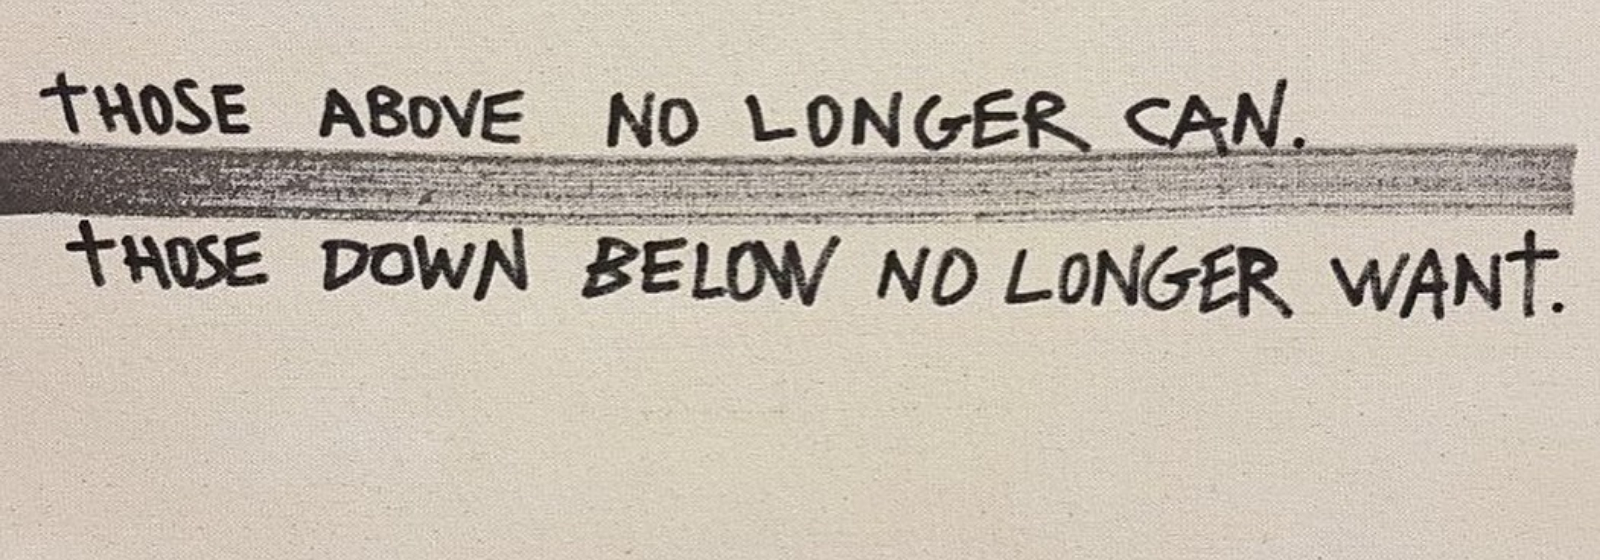 THOSE ABOVE NO LONGER CAN.
THOSE DOWN BELOW NO LONGER WANT.